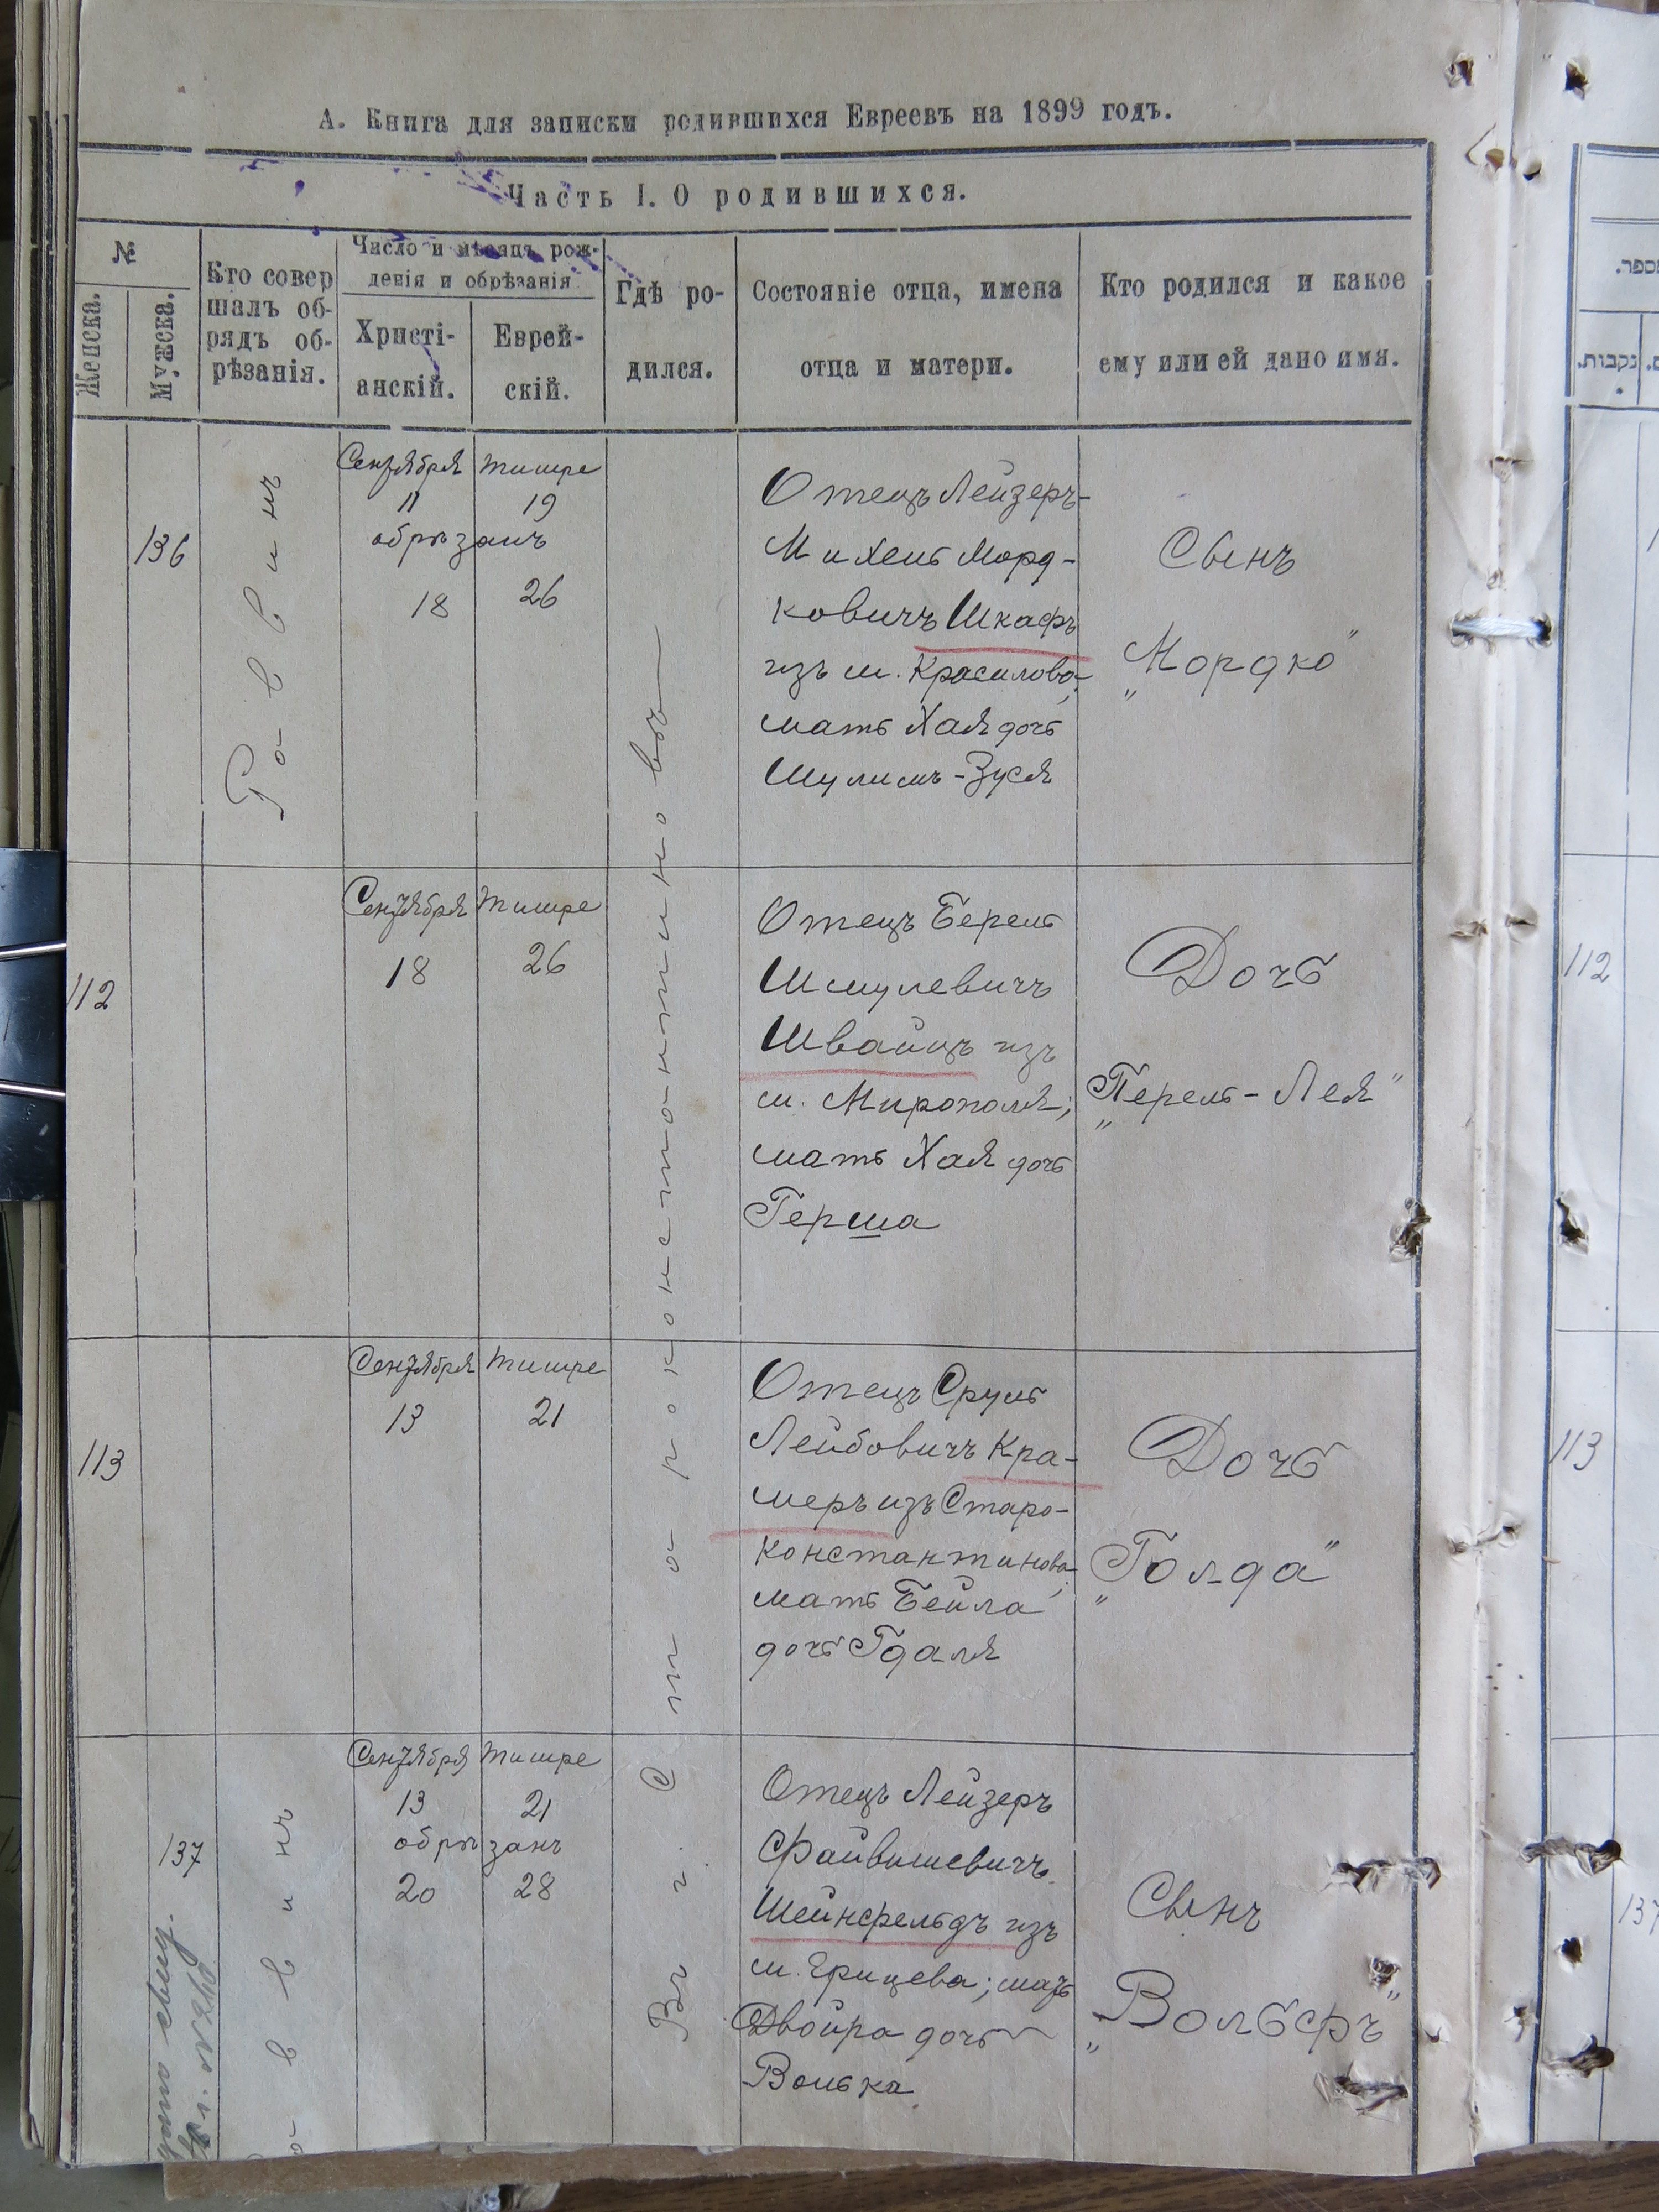 А. Книга для записки родившихся Евреевъ на 1899 годъ.
Часть I. О родившихся.
№
Женска.
Мужска.
Кто совер
шалъ об-
рядъ об-
рѣзанія.
Число и мѣсяцъ рож-
денія и обрѣзанія
Христі-
анскій.
Еврей-
скій.
Гдѣ ро-
дился.
Состояніе отца, имена
отца и матери.
Кто родился и какое
ему или ей дано имя.
136
Раввинъ
Сентября Тишре
11 19
обрѣзанъ
18 26
Въ г. Староконстантиновѣ
Отецъ Лейзеръ-
Михель Морд-
ковичъ Шкафъ
изъ м. Красилова,
мать Хая дочь
Шулимъ-Зуся
Сынъ
„Мордко"
112
Сентября Тишре
18 26
Отецъ Берель
Шмулевичъ
Швайцъ изъ
м. Мирополя;
мать Хая дочь
Герша
Дочь
„Перель-Лея"
113
Сентября Тишре
13 21
Отецъ Сруль
Лейбовичъ Кра-
меръ изъ Старо-
константинова;
мать Бейла
дочь Гдаля
Дочь
„Голда"
137
Раввинъ
Сентября Тишре
13 21
обрѣзанъ
20 28
Отецъ Лейзеръ
Файвишевичъ
Шейнфельдъ изъ
м. Грицева; мать
Двойра дочь
Волька
Сынъ
„Вольфъ"
מספר.
נקבות.
112
113
137